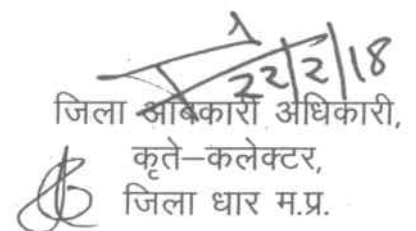 22/2/18
जिला आबकारी अधिकारी,
कृते–कलेक्टर,
जिला धार म.प्र.